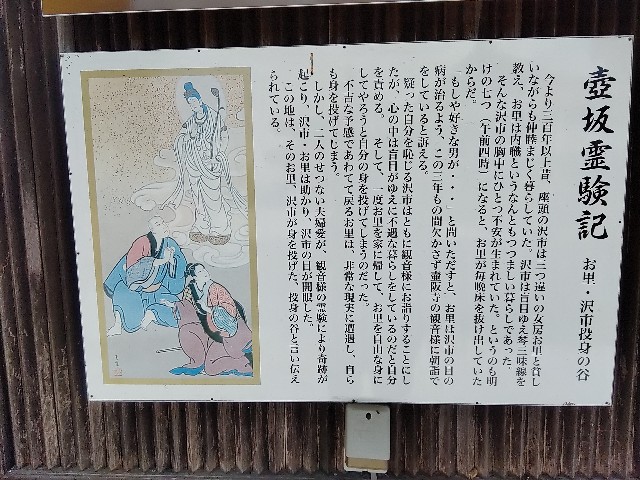 壺坂霊験記
お里・沢市投身の谷
今より三百年以上昔、座頭の沢市は三つ違いの女房お里と貧し
いながらも仲睦まじく暮らしていた。沢市は盲目ゆえ琴三味線を
教え、お里は内職というなんともつつましい暮らしであった。
そんな沢市の胸中にひとつ不安が生まれていた。というのも明
けの七つ（午前四時）になると、お里が毎晩床を抜け出していた
からだ。
もしや好きな男が・・・と問いただすと、お里は沢市の目の
病が治るよう、この三年もの間欠かさず壷阪寺の観音様に朝詣で
をしていると訴える。
疑った自分を恥じる沢市はともに観音様にお詣りすることにし
たが、心の中は盲目がゆえに不遇な暮らしをしているのだと自分
を責める。そして、一度お里を家に帰して、お里を自由な身に
してやろうと自分の身を投げてしまうのだった。
不吉な予感であわてて戻るお里は、非常な現実に遭遇し、自ら
も身を投げてしまう。
しかし、二人のせつない夫婦愛が、観音様の霊験により奇跡が
起こり、沢市・お里は助かり、沢市の目が開眼した。
この地は、そのお里、沢市が身を投げた、投身の谷と言い伝え
られている。